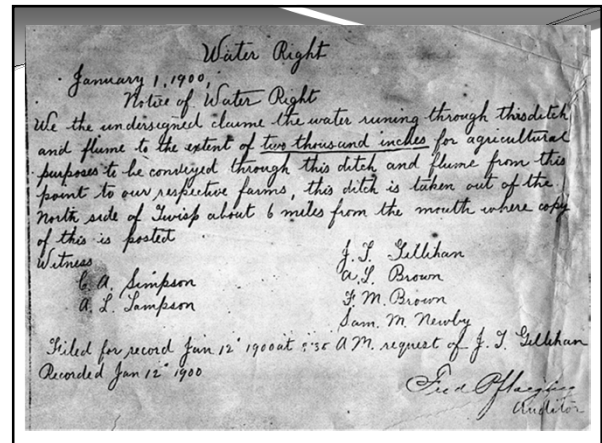 Water Right
January 1, 1900,
Notice of Water Right
We the undersigned claime the water runing through this ditch
and flume to the extent of two thousand inches for agricultural
purposes to be conveyed through this ditch and flume from this
point to our respective farms, this ditch is taken out of the
North side of Twisp about 6 miles from the mouth where copy
of this is posted
Witness
J. T. Gillihan
C. A. Simpson
A. L. Brown
A. L. Sampson
F. M. Brown
Sam. M. Newby
Filed for record Jan 12" 1900 at A M. request of J. T. Gillihan
Recorded Jan 12" 1900
Fred
Auditor